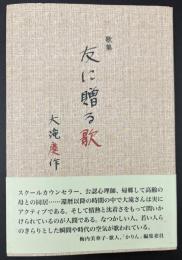 歌集
友に贈る歌
大滝慶作
スクールカウンセラー、公認心理師、帰郷して高齢の
母との同居……還暦以降の時間の中で大滝さんは実に
アクティブである。そして情熱と沈着さをもって問いか
けられているのが人間である。なつかしい人、若い人ら
のきらりとした瞬間や時代の空気が歌われている。
梅内美華子・歌人、「かりん」編集委員